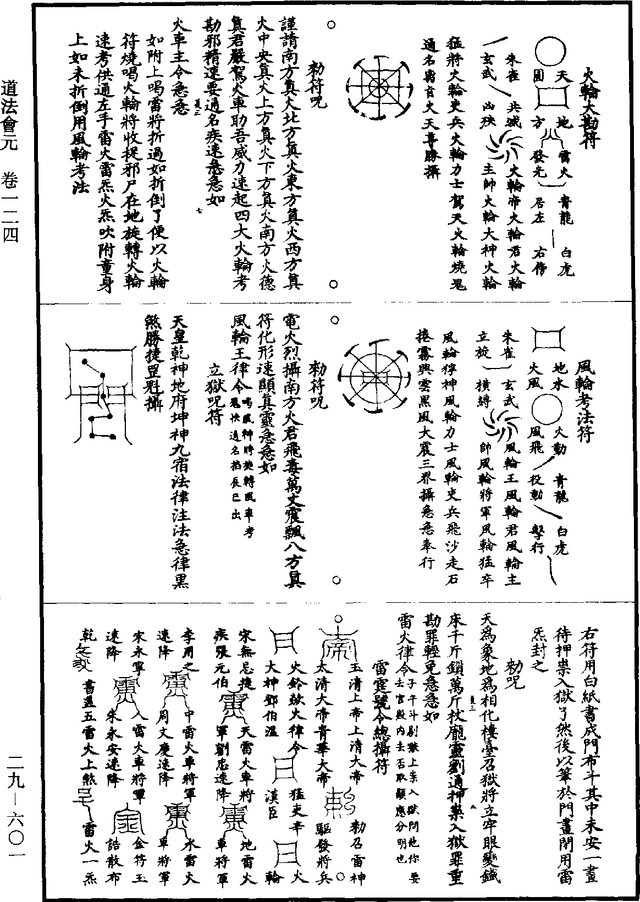 道法會元 卷一二四
二九—六〇一
火輪大勘符
天 地 雷火 青龍 白虎
圓 方 發光 居左 右傍
朱雀 共滅 火輪帝火輪君火輪
玄武 凶殃 主帥火輪大神火輪
猛將火輪吏兵火輪力士駕天火輪燒鬼
通名霸首火天尊勝攝
勑符呪
謹請南方真火北方真火東方真火西方真
火中央真火上方真火下方真火南方火德
真君嚴駕火車助吾威力速起四大火輪考
勘邪精速要通名疾速急急如
火車主令急急
如附上喝雷將折過如折倒了便以火輪
符燒喝火輪將收捉邪尸在地旋轉火輪
速考供通左手雷火雷炁火炁吹附童身
上如未折倒用風輪考法
風輪考法符
地水 火動 青龍 白虎
火風 風飛 役動 擊行
朱雀 玄武 風輪王風輪君風輪主
立旋 橫縛 帥風輪將軍風輪猛卒
風輪停神風輪力士風輪吏兵飛沙走石
捲霧興雲黑風大震三界攝急急奉行
勑符呪
電火烈攝南方火君飛毒萬丈震飄八方真
符化形速顯真靈急急如
風輪王律令
立獄呪符
天皇乾神地府坤神九宿法律注法急律黑
煞勝捷罡魁攝
右符用白紙書成門布斗其中未安一畫
待押祟入獄了然後以筆於門畫閉用雷
炁封之
勑呪
天為象地為相化樓臺召獄將立牢眼變鐵
床千斤鎖萬斤杖龐靈劉通押祟入獄罪重
勘罪輕免急急如
雷火律令
雷霆號令總攝符
玉清上帝上清大帝 勑召雷神
太清大帝青華大帝 驅發將兵
火鈴歘火律令 猛吏辛
大神鄧伯溫 漢臣
宋無忌捷 天雷火車將 地雷火
疾張元伯 軍劉忠速降 車將軍
李用之 中雷火車將軍 水雷火
速降 周文慶速降 車將軍
宋永寧 人雷火車將軍 金符玉
速降 朱永安速降 誥敕布
書蓋五雷火上煞 雷火一炁